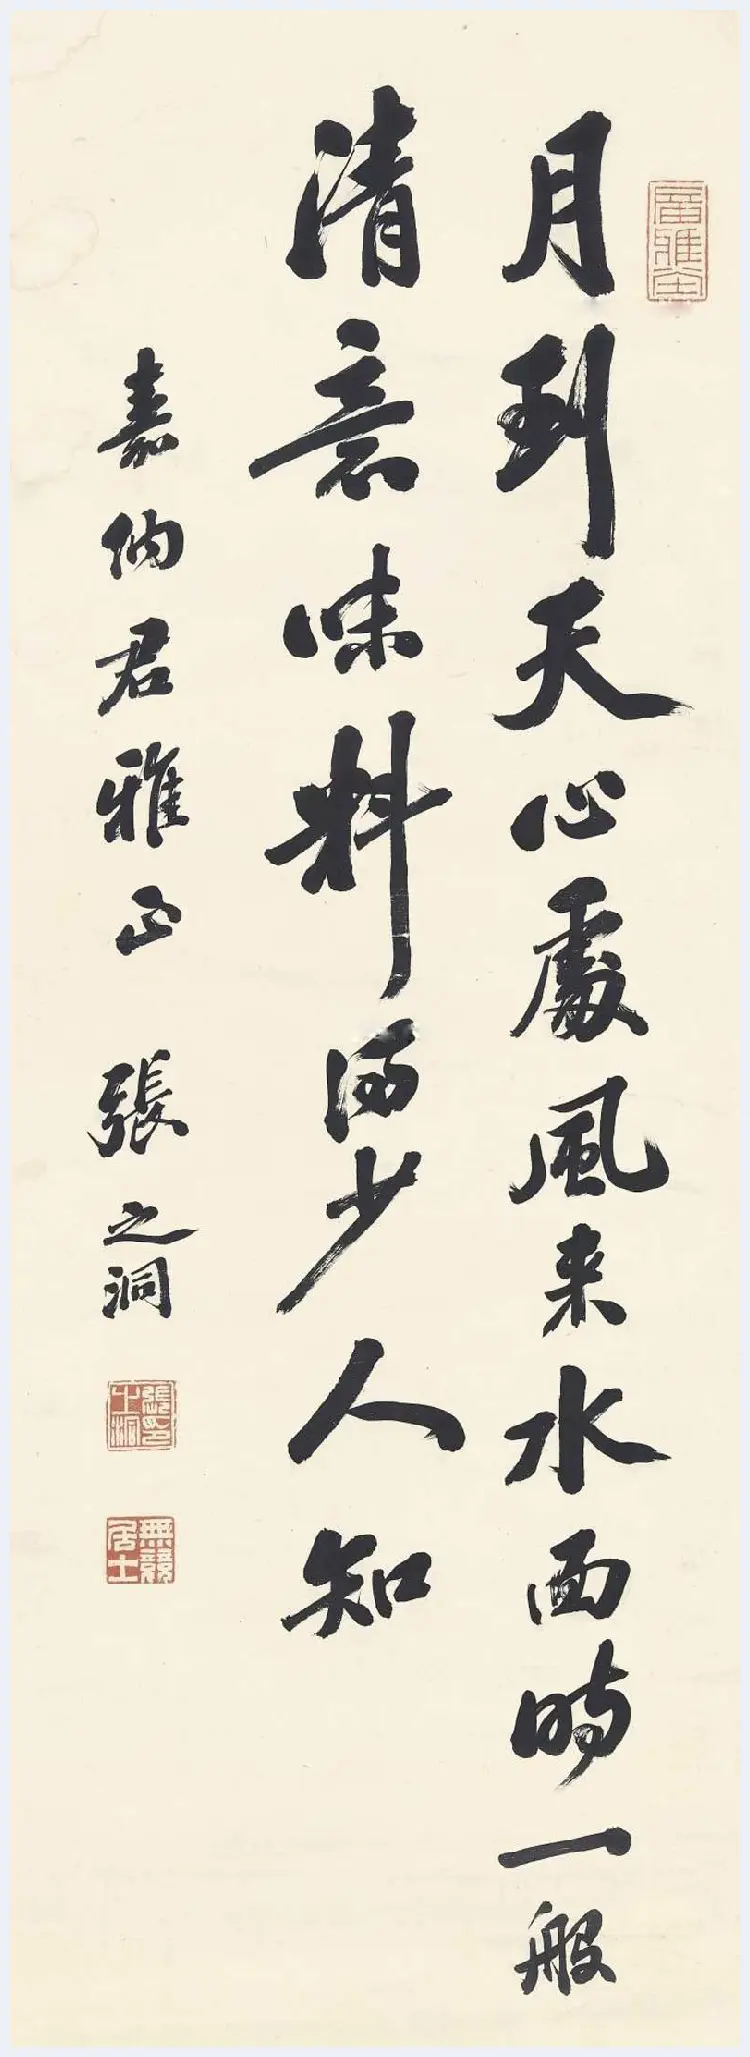 月到天心處風来水面時一般
清意味料得少人知
嘉納君雅正 張之洞
張印之洞
無競居士